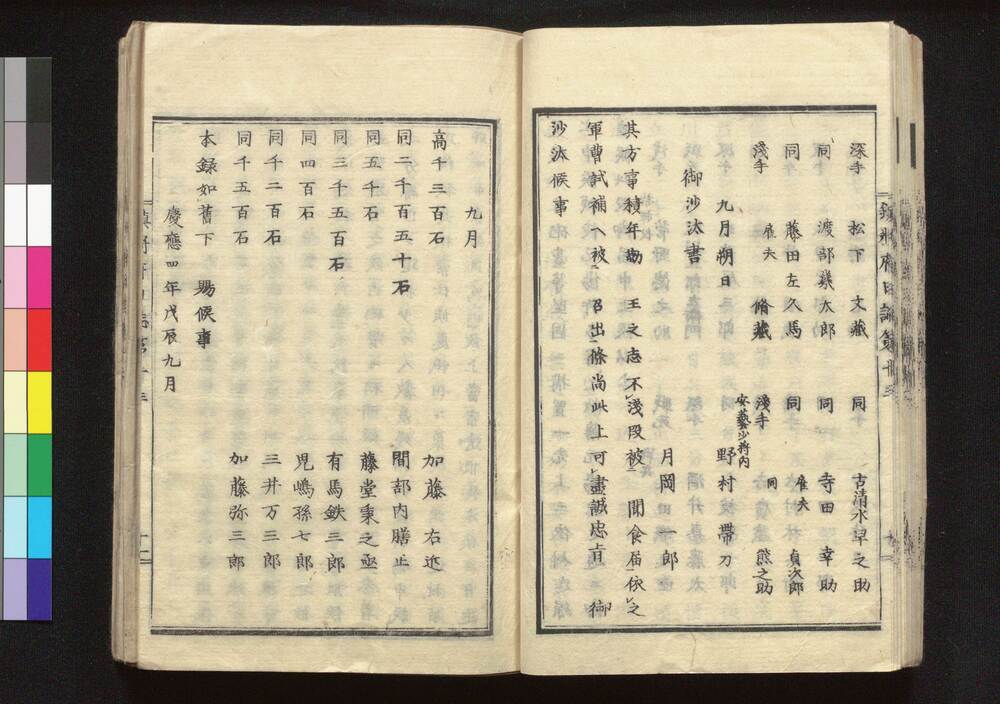 深手　松下　文藏　同　古清水早之助
同　渡部籏太郎　同　寺田　幸助
同　藤田左久馬　同　雇夫　貞次郎
淺手　雇夫　脩藏　淺手　同　熊之助
九月朔日　安藝少将内　野村校帶刀
御沙汰書　月岡　一郎
其方事積年勤　王之志不淺段被　聞食届依之
軍曹試補ヘ被　召出候條尚此上可盡誠忠旨　御
沙汰候事
九月
高千三百石　加藤　右近
同二千百五十石　間部内膳正
同五千石　藤堂秉之亟
同三千五百石　有馬鉄三郎
同四百石　児嶋孫七郎
同千二百石　三井万三郎
同千五百石　加藤弥三郎
本録如舊下　賜候事
慶應四年戊辰九月
鎮将府日誌第
十二